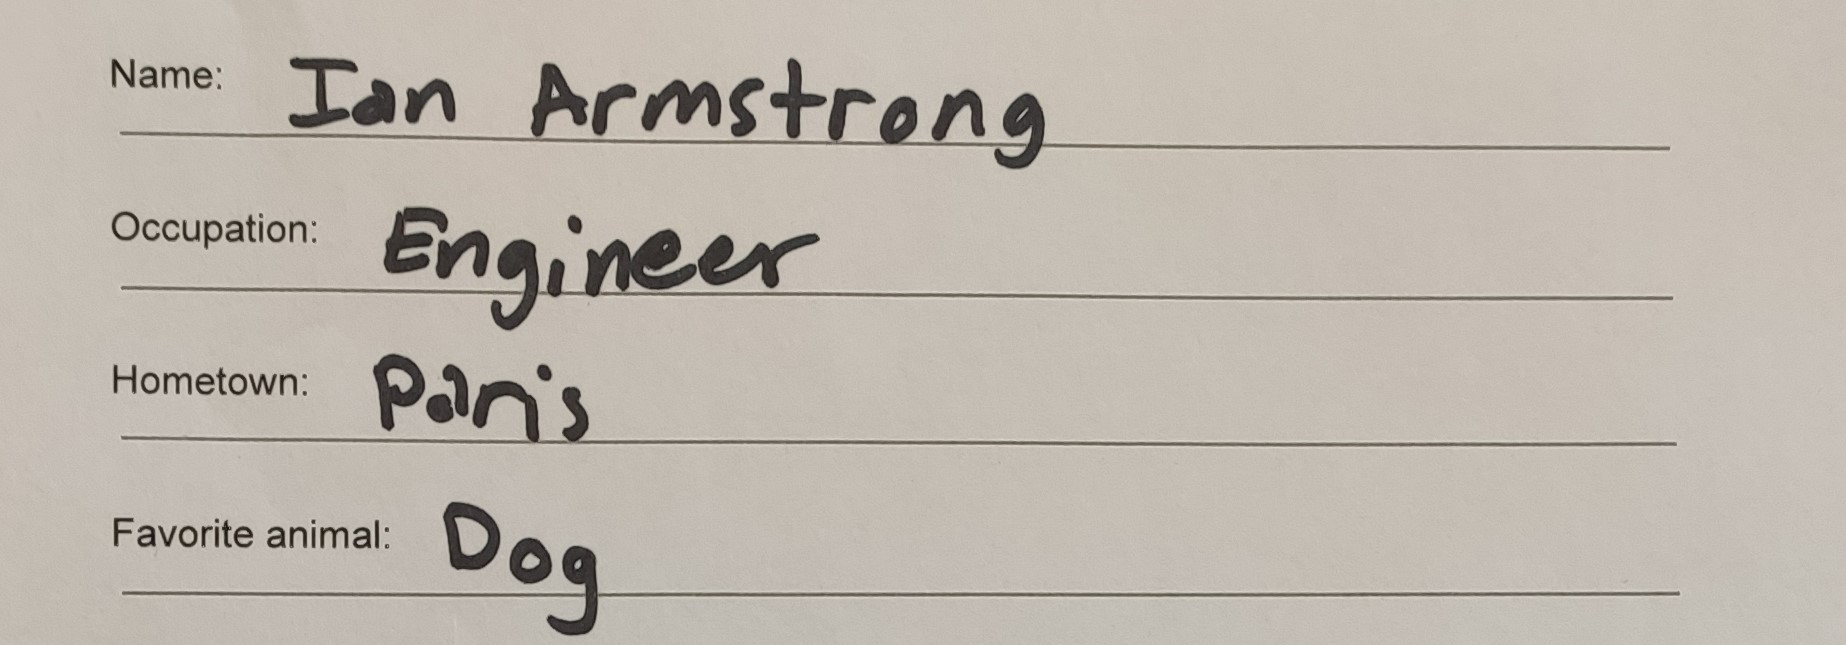 Name: Ian Armstrong
Occupation: Engineer
Hometown: Paris
Favorite animal: Dog